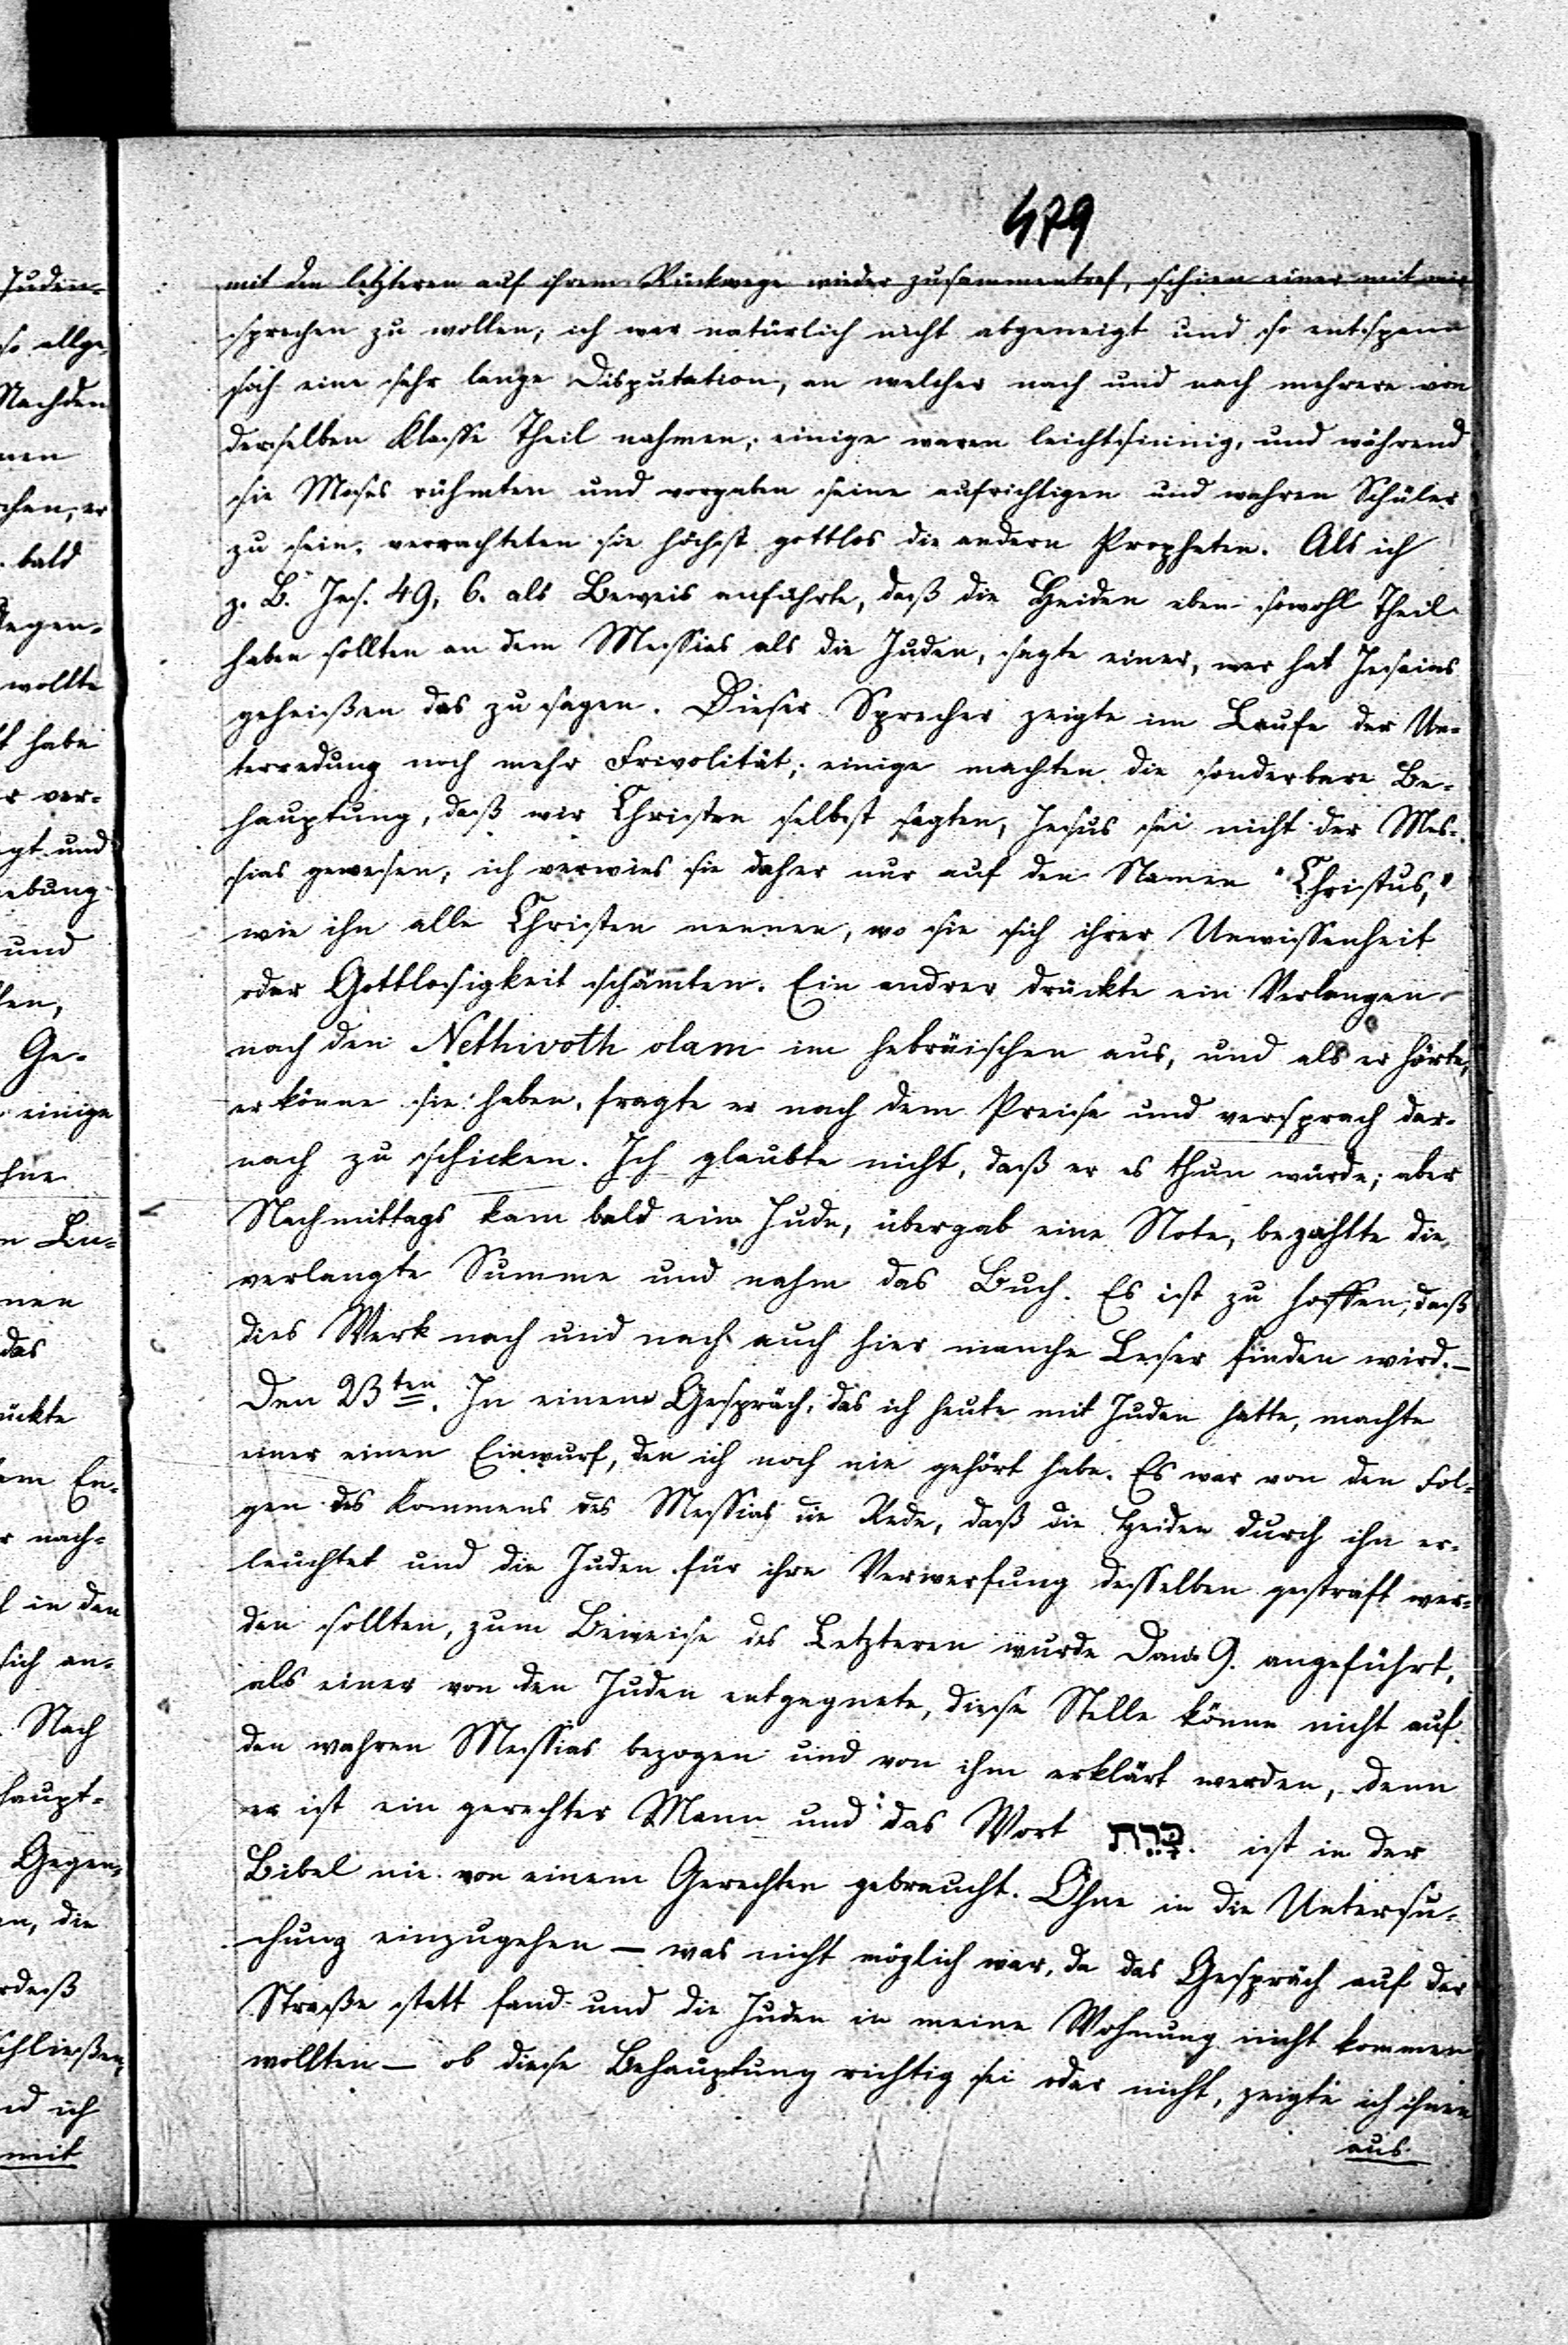 479
mit den letzteren auf ihrem Rückwege wieder zusammentraf, schien einer mit mir
sprechen zu wollen; ich war natürlich nicht abgeneigt und so entspann
sich eine sehr lange Disputation, an welcher nach und nach mehrere von
derselben Klasse Theil nahmen; einige waren leichtsinnig, und während
sie Moses rühmten und vorgaben seine aufrichtigen und wahren Schüler
zu sein, verachteten sie höchst gottlos die andern Propheten. Als ich
z. B. Jes. 49, 6. als Beweis anführte, daß die Heiden eben sowohl Theil
haben sollten an dem Messias als die Juden, sagte einer, wer hat Jesaias
geheißen das zu sagen. Dieser Sprecher zeigte im Laufe der Un-
terredung noch mehr Frivolität; einige machten die sonderbare Be-
hauptung, daß wir Christen selbst sagten, Jesus sei nicht der Mes-
sias gewesen; ich verwies sie daher nur auf den Namen "Christus,"
wie ihn alle Christen nennen, wo sie sich ihrer Unwissenheit
oder Gottlosigkeit schämten. Ein andrer drückte ein Verlangen
nach den Nethivoth olam im hebräischen aus, und als er hörte,
er könne sie haben, fragte er nach dem Preise und versprach dar-
nach zu schicken. Ich glaubte nicht, daß er es thun würde; aber
Nachmittags kam bald ein Jude, übergab eine Note, bezahlte die
verlangte Summe und nahm das Buch. Es ist zu hoffen, daß
dies Werk nach und nach auch hier manche Leser finden wird. –
Den 23ten. In einem Gespräch, das ich heute mit Juden hatte, machte
einer einen Einwurf, den ich noch nie gehört habe. Es war von den Fol-
gen des Kommens des Messias die Rede, daß die Heiden durch ihn er-
leuchtet und die Juden für ihre Verwerfung desselben gestraft wer-
den sollten, zum Beweise des Letzteren wurde Dan. 9. angeführt,
als einer von den Juden entgegnete, diese Stelle könne nicht auf
den wahren Messias bezogen und von ihm erklärt werden, denn
er ist ein gerechter Mann und das Wort כָּרֵת ist in der
Bibel nie von einem Gerechten gebraucht. Ohne in die Untersu-
chung einzugehen – was nicht möglich war, da das Gespräch auf der
Straße statt fand und die Juden in meine Wohnung nicht kommen
wollten – ob diese Behauptung richtig sei oder nicht, zeigte ich ihnen
aus